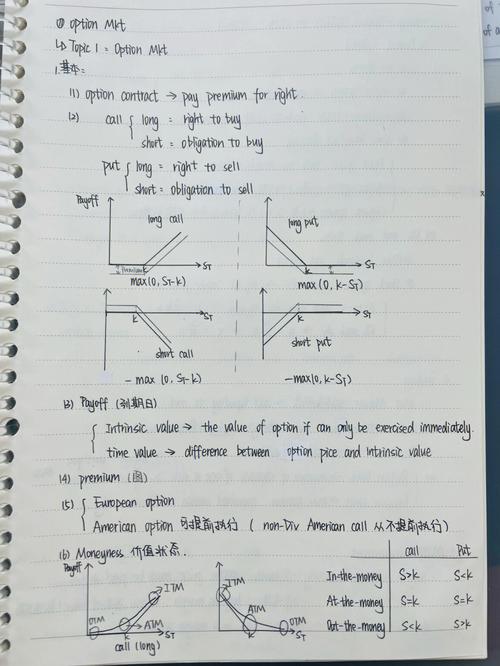 ① option Mkt
↳ Topic 1 = Option Mkt
1.基本:
(1) option contract → pay premium for right.
(2) call { long = right to buy
short = obligation to buy
put { long = right to sell
short = obligation to sell
Payoff
long call
premium
K
ST
max(0, ST-K)
long put
K
ST
max(0, K-ST)
K
ST
short call
- max (0, ST-K)
K
ST
short put
-max(0, K-ST)
(3) Payoff (到期日)
{ Intrinsic value → the value of option if can only be exercised immediately.
time value → difference between option pice and Intrinsic value
(4) premium (图)
(5) { European option
American option 可提前执行 ( non-Div American call 从不提前执行)
(6) Moneyness 价值状态.
Payoff
ITM
OTM
ATM
K
ST
call (long)
ITM
ATM
OTM
K
ST
call Put
In-the-money S>K S<K
At-the-money S=K S=K
Out-the-money S<K S>K
of
of a